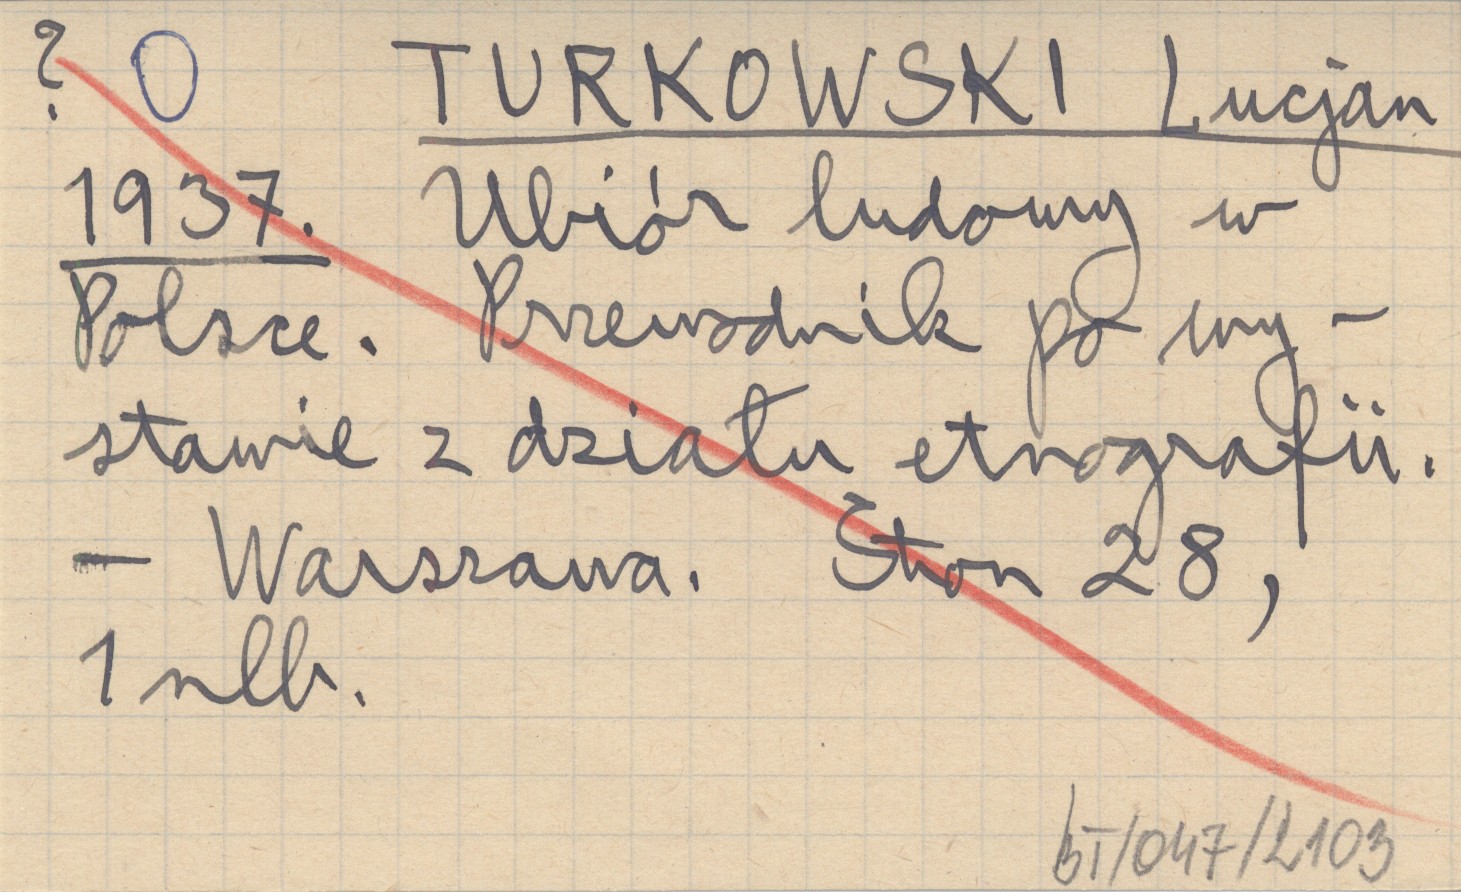 ? O TURKOWSKI Lucjan
1937. Ubiór ludowy w
Polsce. Przewodnik po wy-
stawie z działu etnografii.
- Warszawa. Stron 28,
1 nlb.
BT/047/2103